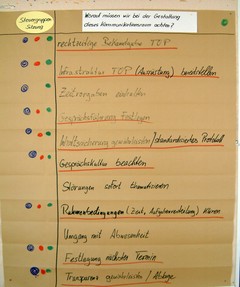 Steuergruppen
Sitzung
Worauf müssen wir bei der Gestaltung
dieses Kommunikationsraums achten?
rechtzeitige Bekanntgabe TOP
Infrastruktur TOP (Ausrüstung) bereitstellen
Zeitvorgaben einhalten
Gesprächsführung festlegen
Inhaltssicherung gewährleisten / standardisiertes Protokoll
Gesprächskultur beachten
Störungen sofort thematisieren
Rahmenbedingungen (Zeit, Aufgabenverteilung) klären
Umgang mit Abwesenheit
Festlegung nächster Termin
Transparenz gewährleisten / Ablage